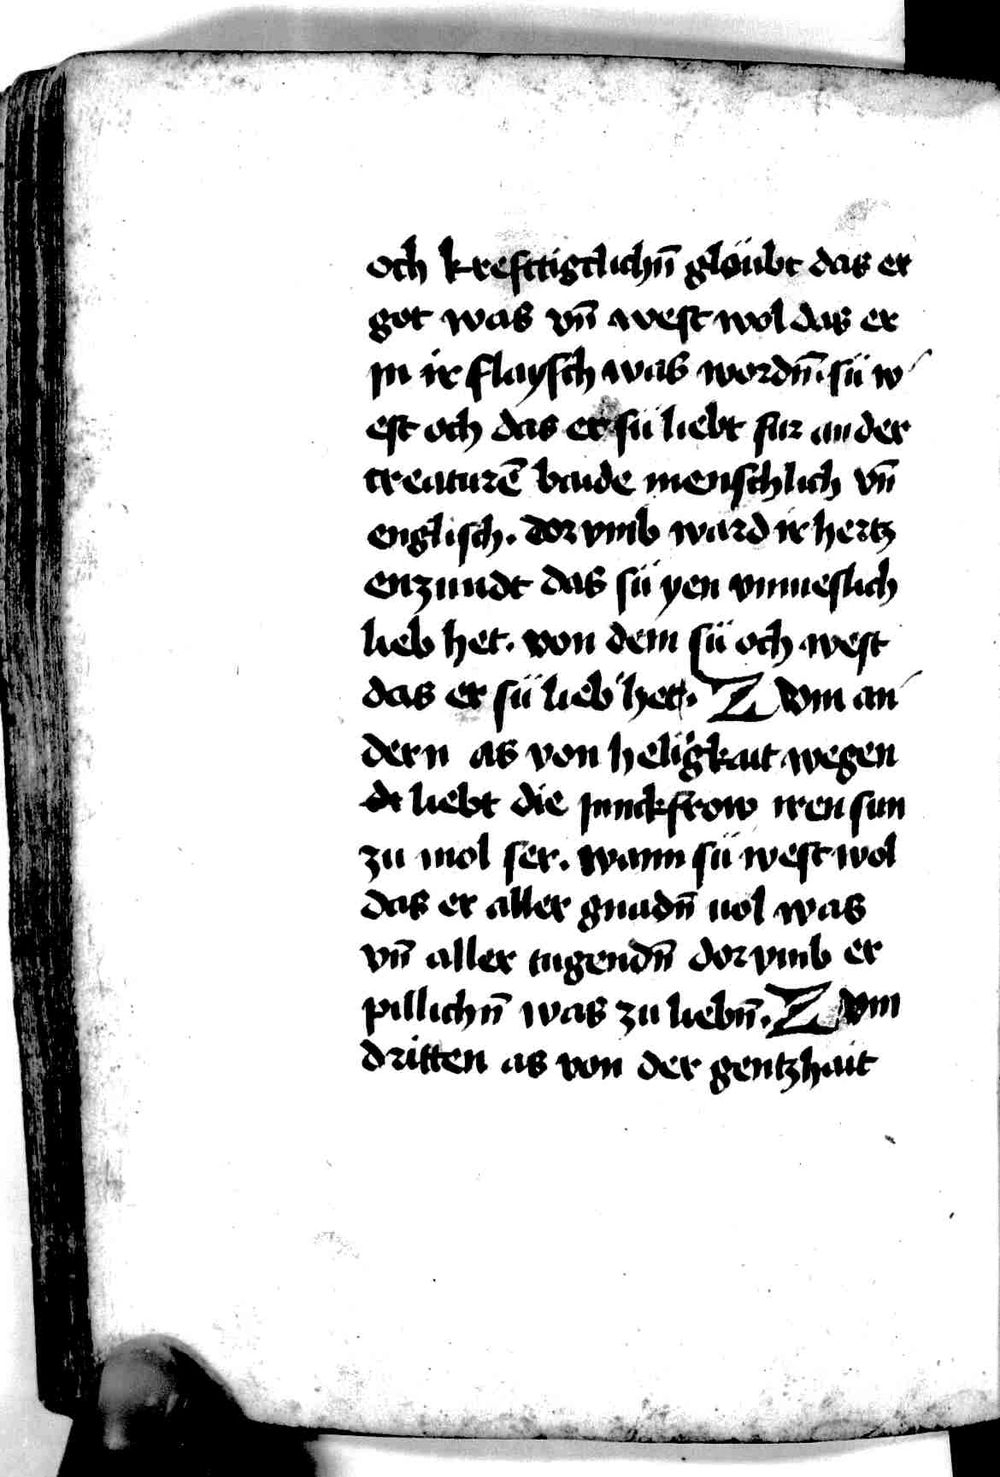 och krefttigclichn̄ gloͤubt das er
got was vn̄ west wol das er
jn ir flaysch was wordn̄. sü w
est och das er sü liebt fur ander
creaturē baide menschlich vn̄
englisch. dor vmb ward ir hertz
enzundt das sü yen vnmeslich
lieb het. von dem sü och west
das er sü lieb het. Z vm an
dern as von heligkait wegen
dt liebt die junckfrow iren sun
zu mol ser. wann sü west wol
das er aller gnadn̄ uol was
vn̄ aller tugendn̄ dor vmb er
pillichn̄ was zu liebn̄. Z vm
dritten as von der gentzhait